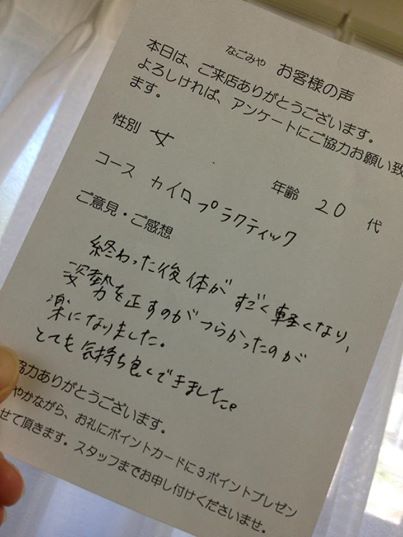 なごみや お客様の声
本日は、ご来店ありがとうございます。
よろしければ、アンケートにご協力お願い致
ます。
性別 女 年齢 20 代
コース カイロプラクティック
ご意見・ご感想
終わった後体がすごく軽くなり、
姿勢を正すのがつらかったのが
楽になりました。
とても気持ち良くできました。
協力ありがとうございます。
やかながら、お礼にポイントカードに3ポイントプレゼン
せて頂きます。スタッフまでお申し付けくださいませ。